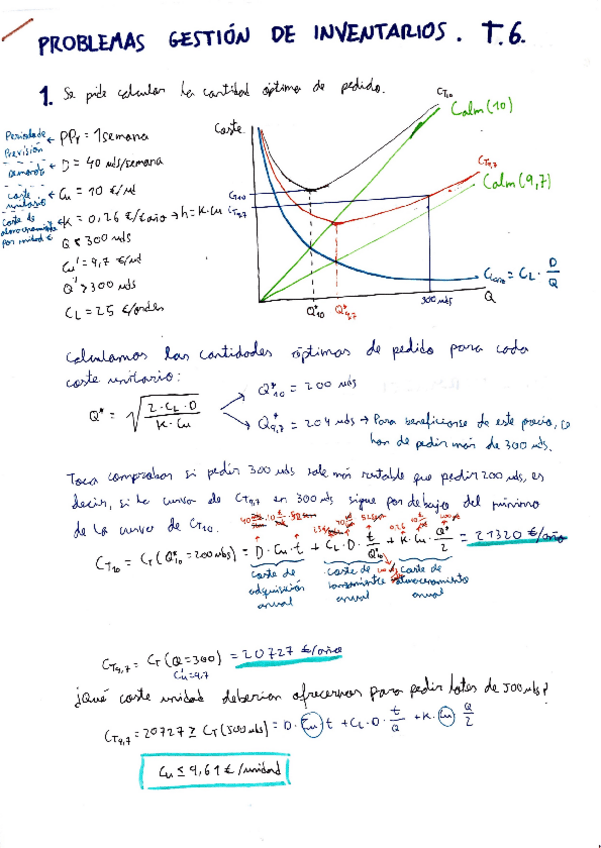 PROBLEMAS GESTIÓN DE INVENTARIOS. T.6.
1. Se pide calcular la cantidad óptima de pedido.
Periodo de Previsión ← PPr = 1 semana
Demanda ← D = 40 uds/semana
coste unitario ← Cu = 10 €/ud
coste de almacenamiento por unidad ← K = 0,26 €/€año → h = K·Cu
Q < 300 uds
Cu' = 9,7 €/ud
Q' > 300 uds
CL = 25 €/orden
Coste
CT10
Calm (10)
CT9,7
Calm (9,7)
CT10
CT9,7
= CL · D/Q
Q*10
Q*9,7
300 uds
Q
Calculamos las cantidades óptimas de pedido para cada
coste unitario:
Q* = √(2·CL·D / K·Cu)
Q*10 = 200 uds
Q*9,7 = 204 uds → Para beneficiarse de este precio, se
han de pedir más de 300 uds.
Toca comprobar si pedir 300 uds sale más rentable que pedir 200 uds, es
decir, si la curva de CT9,7 en 300 uds sigue por debajo del mínimo
de la curva de CT10.
CT10 = CT (Q*10 = 200 uds) = D·Cu·t + CL·D·t/Q*10 + K·Cu·Q*/2 = 21320 €/año
coste de adquisición anual
coste de lanzamiento anual
coste de almacenamiento anual
CT9,7 = CT (Q=300) = 20727 €/año
Cu=9,7
¿Qué coste unidad deberían ofrecernos para pedir lotes de 500 uds?
CT9,7 = 20727 ≥ CT (500 uds) = D·Cu·t + CL·D·t/Q + K·Cu·Q/2
Cu ≤ 9,61 €/unidad